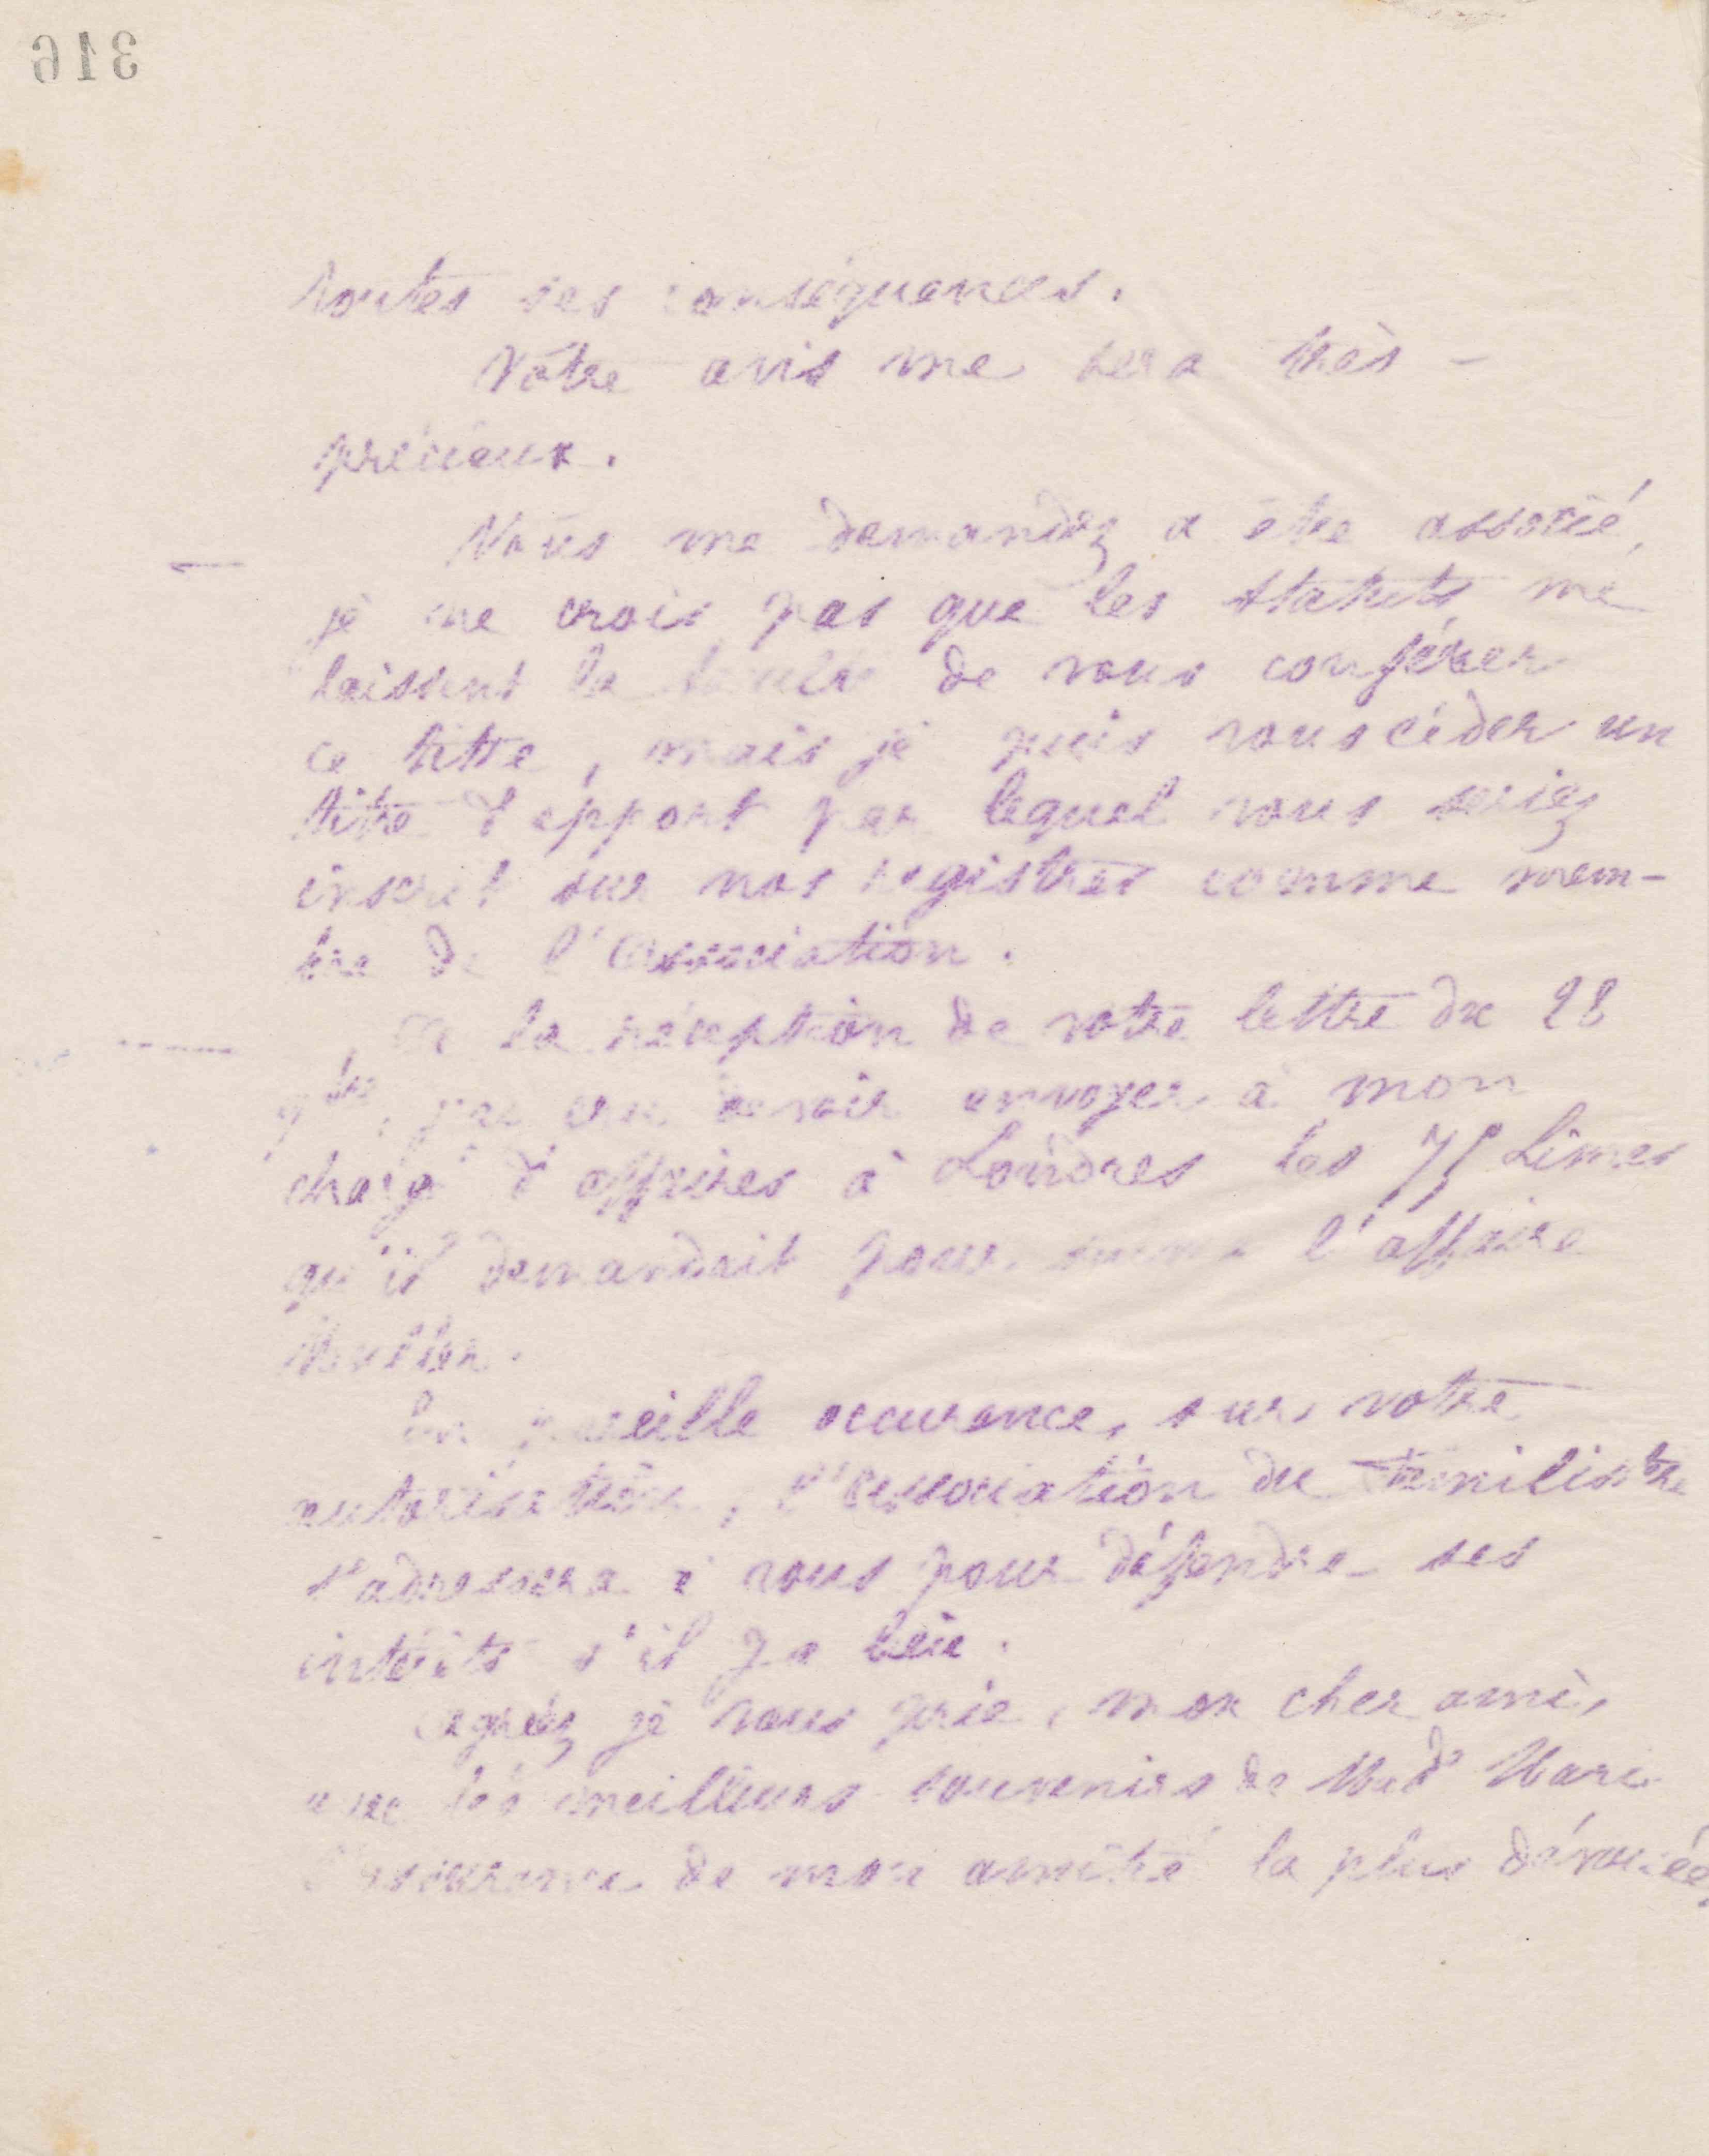 316
toutes ses conséquences.
Votre avis me sera très-
précieux.
Vous me demandez a être associé,
je ne crois pas que les statuts me
laissent la faculté de vous conférer
ce titre, mais je puis vous céder un
titre d'apport par lequel vous seriez
inscrit sur nos registres comme mem-
bre de l'Association.
A la réception de votre lettre du 28
9bre, j'ai cru devoir envoyer à mon
chargé d'affaires à Londres les 75 Livres
qu'il demandait pour suivre l'affaire
Muller.
En pareille occurence, sur votre
autorisation, l'Association du Familistère
s'adressera à vous pour défendre ses
intérêts s'il y a lieu.
Agréez je vous prie, mon cher ami,
avec les meilleurs souvenirs de Made Marie
l'assurance de mon amitié la plus dévouée,